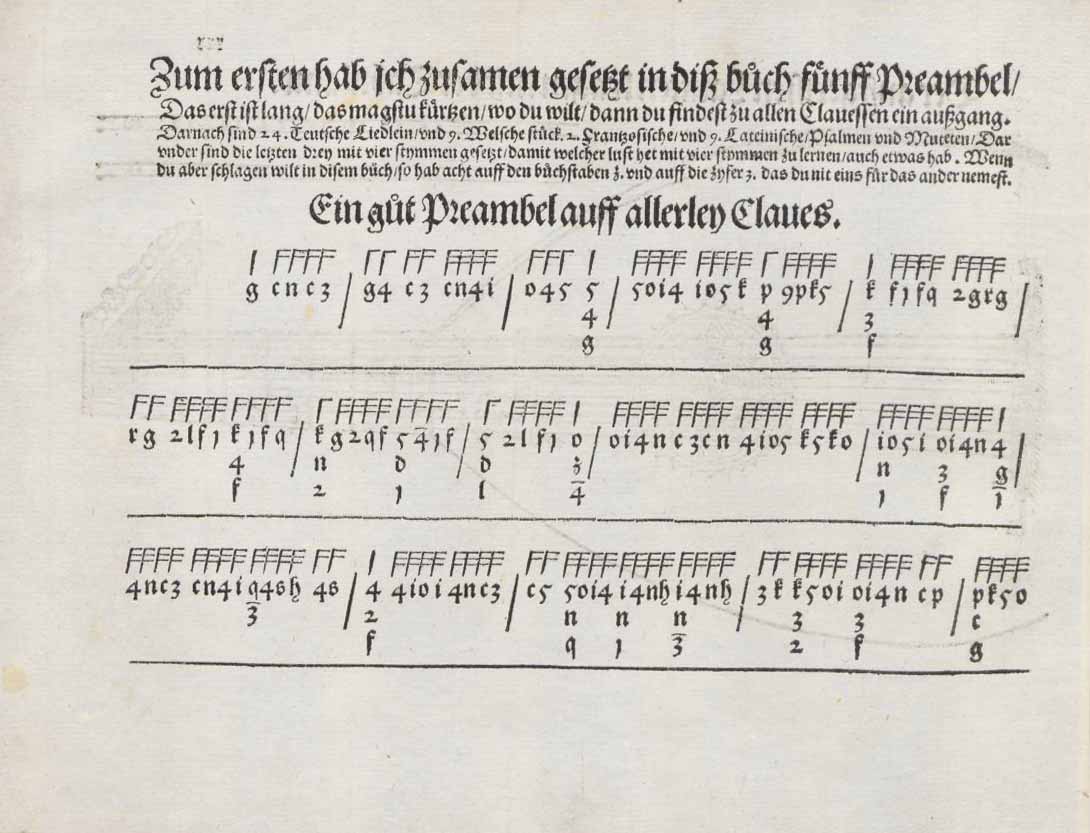 Zum ersten hab jch zusamen gesetzt in diß bůch fünff Preambel/
Das erst ist lang/das magstu kürtzen/wo du wilt/dann du findest zu allen Clauessen ein außgang.
Darnach sind 24. Teutsche Liedlein/vnd 7. Welsche stück. 2. Frantzosische/vnd 7. Lateinische/Psalmen vnd Muteten/Dar
vnder sind die letzten drey mit vier stymmen gesetzt/damit welcher lust het mit vier stymmen zu lernen/auch etwas hab. Wenn
du aber schlagen wilt in disem bůch/so hab acht auff den bůchstaben z. vnd auff die zyfer 3. das du nit eins für das ander nemest.
Ein gůt Preambel auff allerley Claues.
g c n c 3 / g 4 c 3 c n 4 i / o 4 5 5 / 5 o i 4 i o 5 k p 9 p k 5 / k f 1 f q 2 g r g /
4 4 3
g g f
r g 2 l f 1 k 1 f q / k g 2 q f 5 4 1 f / 5 2 l f 1 o / o i 4 n c 3 c n 4 i o 5 k 5 k o / i o 5 i o i 4 n 4 /
4 n d d 3 n 3 g
f 2 1 l 4 1 f 1
4 n c 3 c n 4 i q 4 s h 4 s / 4 4 i o i 4 n c 3 / c 5 5 o i 4 i 4 n h i 4 n h / 3 k k 5 o i o i 4 n c p / p k 5 o
3 2 n n n 3 3 c
f q 1 3 2 f g